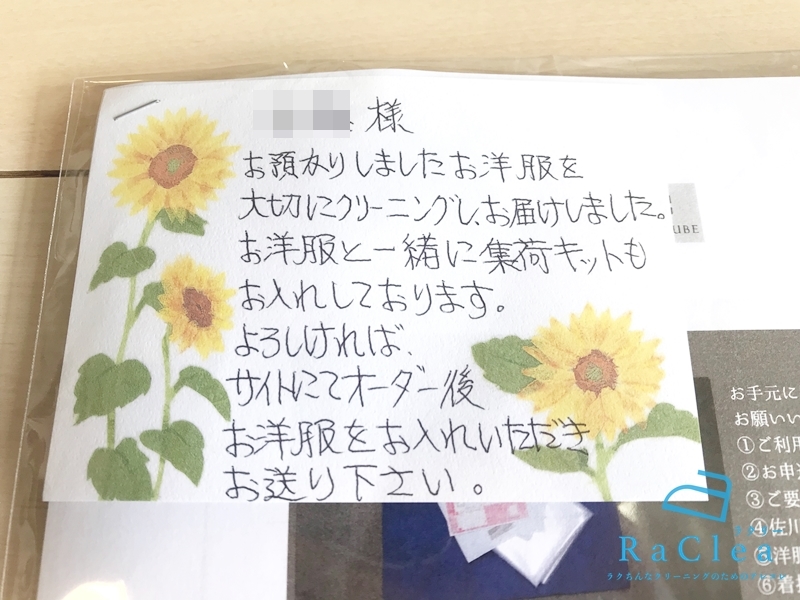 様
お預かりしましたお洋服を
大切にクリーニングし、お届けしました。
お洋服と一緒に集荷キットも
お入れしております。
よろしければ、
サイトにてオーダー後
お洋服をお入れいただき
お送り下さい。
UBE
お手元に
お願いい
①ご利用
②お申込
③ご要
④佐川
⑤洋服
⑥着払
RaClea
ラクちんなクリーニングのための